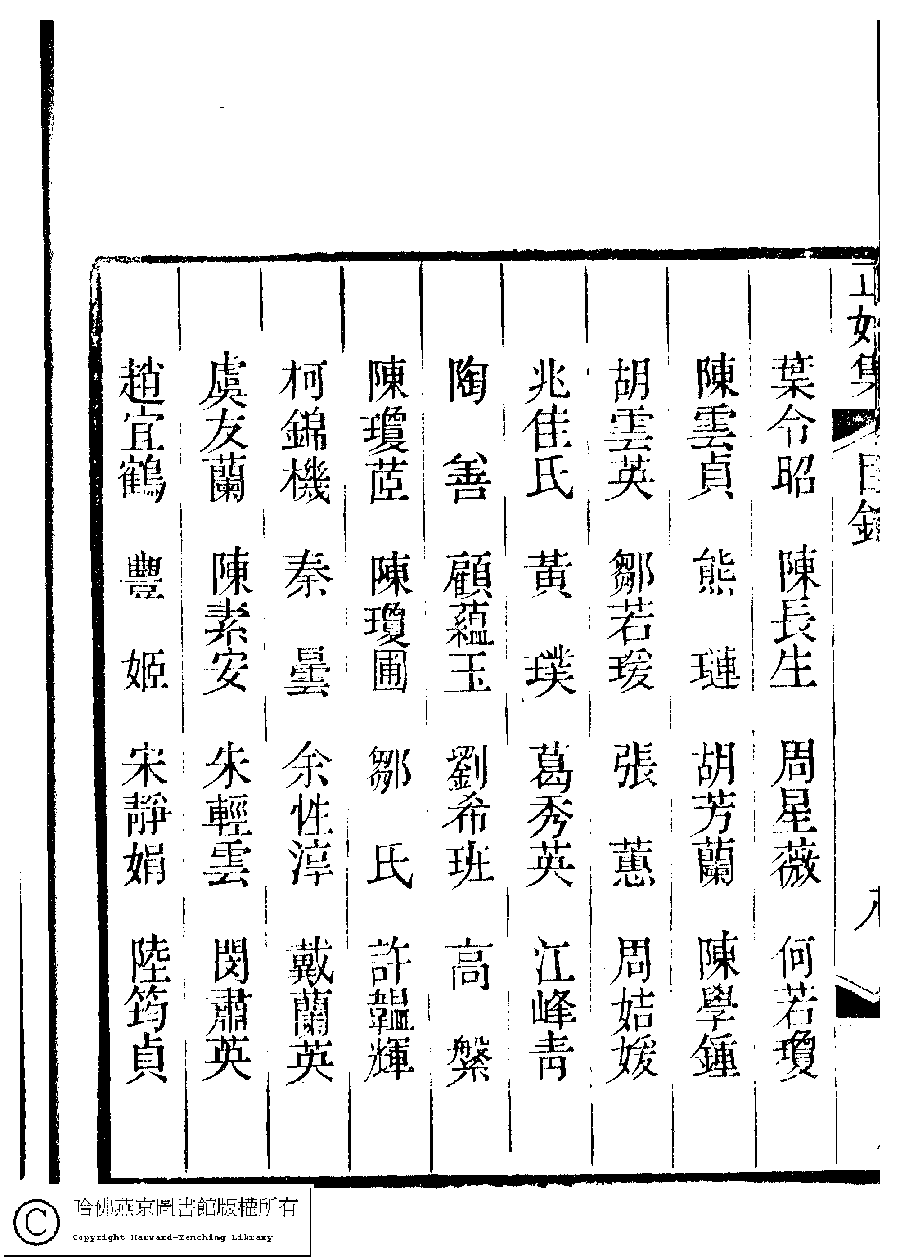 正始集 目錄 八
葉令昭 陳長生 周星薇 何若瓊
陳雲貞 熊璉 胡芳蘭 陳學鍾
胡雲英 鄒若瑗 張蕙 周姞媛
兆佳氏 黃璞 葛秀英 江峰青
陶善 顧蘊玉 劉希班 高槃
陳瓊茝 陳瓊圃 鄒氏 許韞輝
柯錦機 秦曇 余性淳 戴蘭英
虞友蘭 陳素安 朱輕雲 閔肅英
趙宜鶴 豐姬 宋靜娟 陸筠貞
哈佛燕京圖書館版權所有
Copyright Harvard-Yenching Library